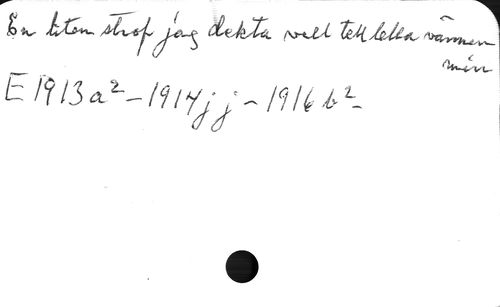 En liten strof jag dikta vill till lilla vännen
min
E 1913 a² – 1914 j j – 1916 b² –